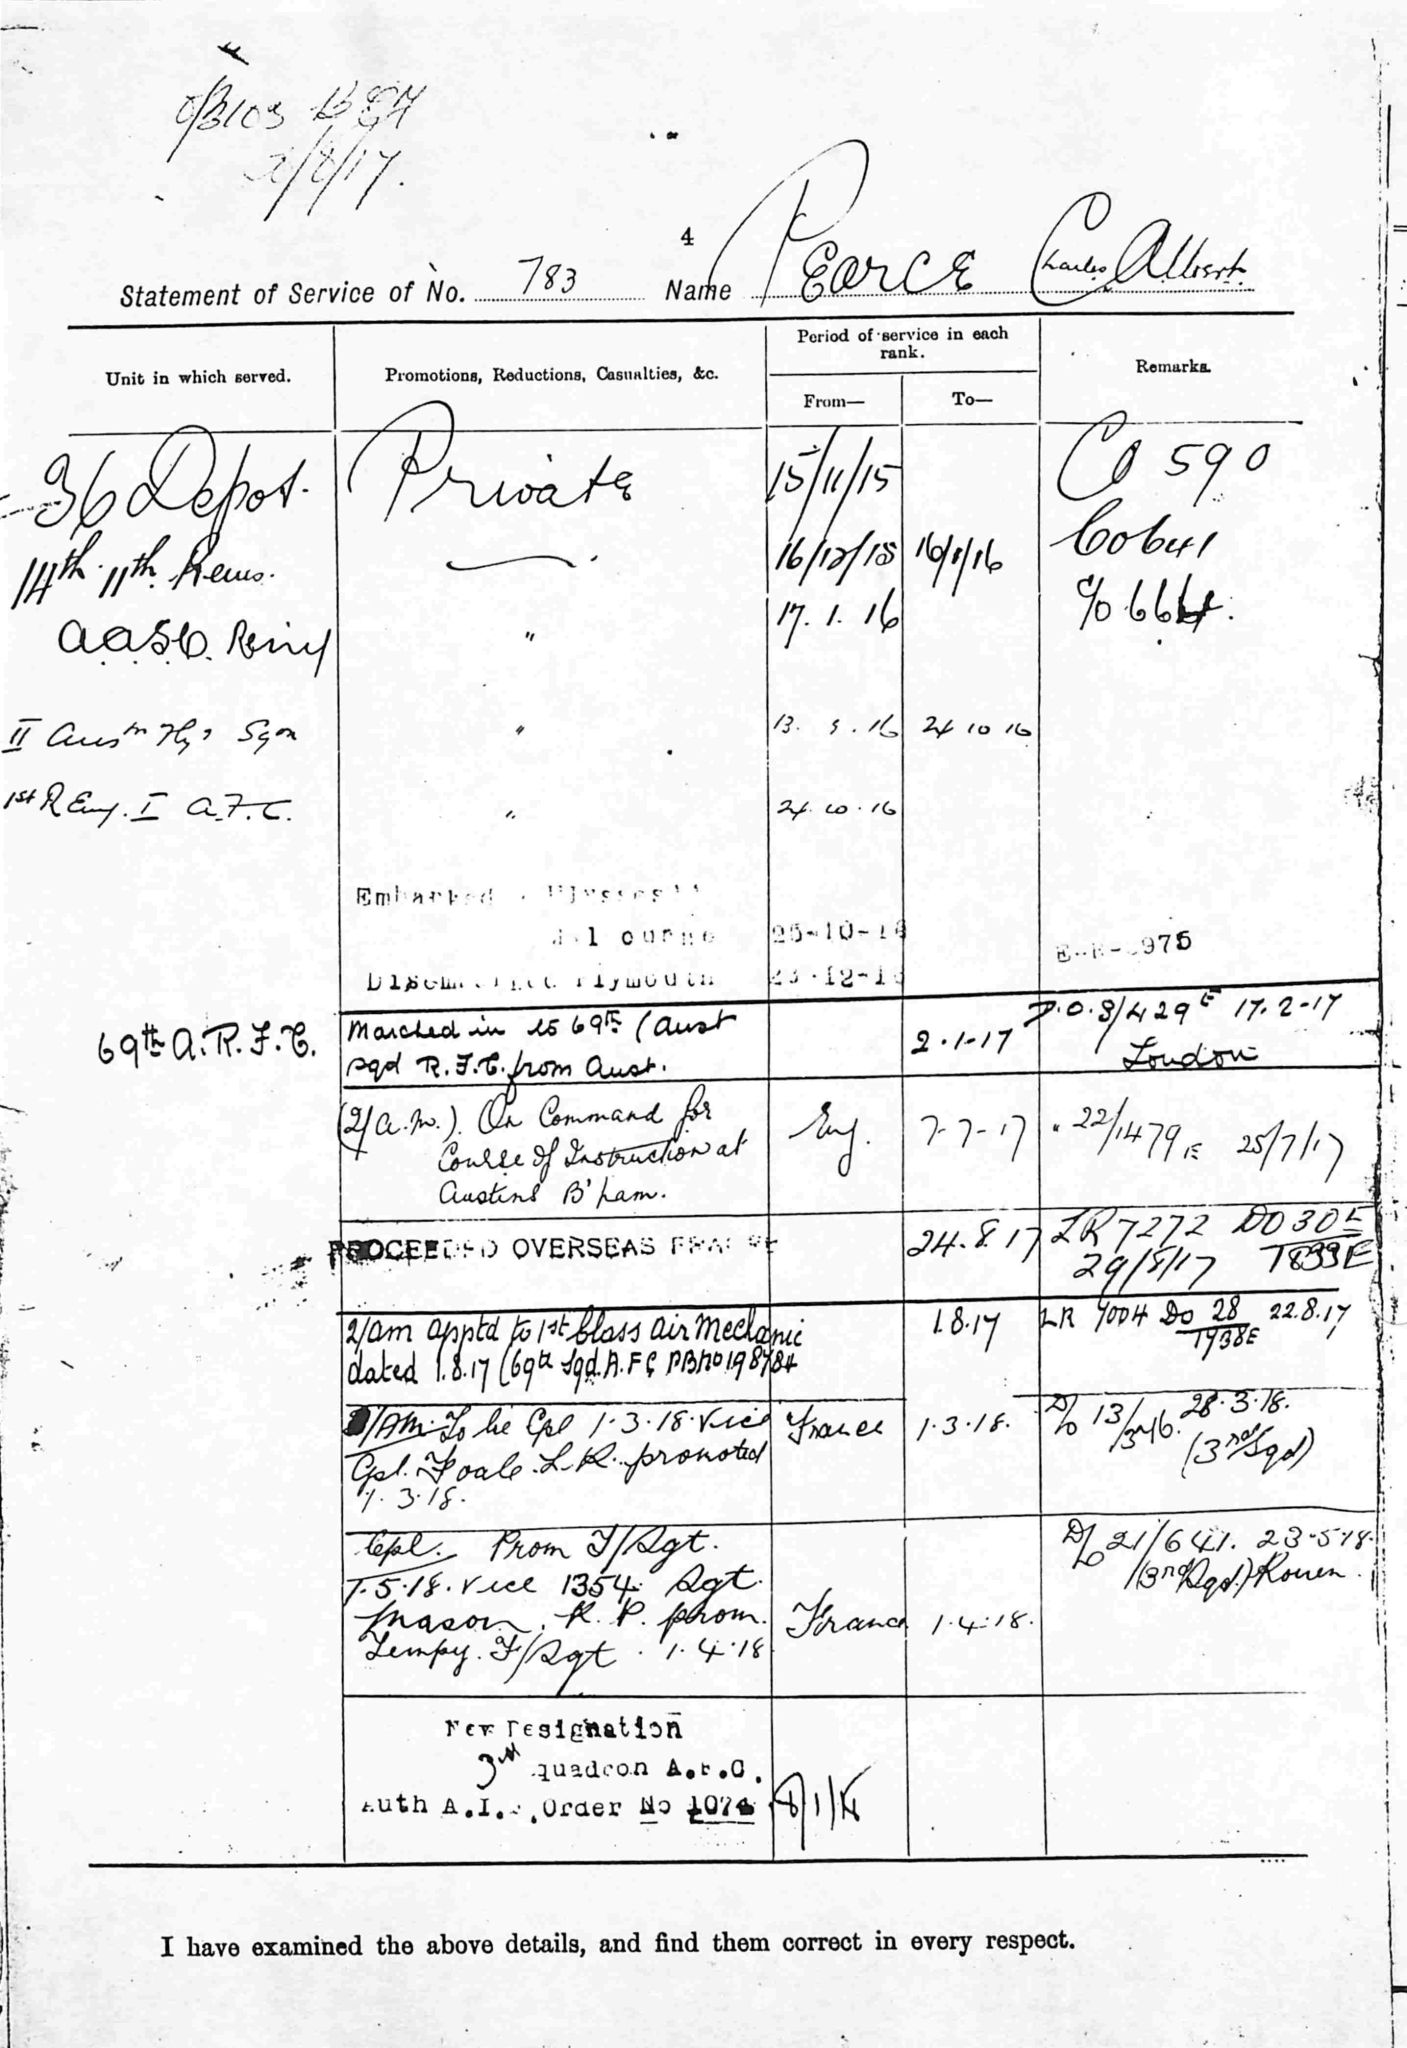 2/8/17.
4
Statement of Service of No. 783 Name Pearce Charles Albert
Unit in which served.
Promotions, Reductions, Casualties, &c.
Period of service in each
rank.
From—
To—
Remarks.
36 Depot. Private 15/11/15 CO 590
14th 11th Reins. 16/12/15 16/1/16 Co641
A.A.S.C. Reinf " 17.1.16 C/O 664.
II Ausn Flyg Sqn " 13. 9. 16 24 10 16
1st REinf. I A.F.C. " 24.10.16
Embarked Ulysses
25-10-16
Plymouth
69th A.R.F.C. Marched in to 69th (Aust 2.1.17 D.O.8/429E 17.2-17
Sqd R.F.C. from Aust. London
(2/A.M.). On Command for Eng. 7-7-17 " 22/1479E 25/7/17
Course of Instruction at
Austins B'ham.
PROCEEDED OVERSEAS FRANCE 24.8.17 LR 7272 DO 30E
29/8/17 1899E
2/am apptd to 1st Class Air Mechanic 1.8.17 LR 7004 Do 28 22.8.17
1738E
dated 1.8.17 (69th Sqd. A.F.C
/AM. To be Cpl 1.3.18. Vice France 1.3.18. D/o 13/346. 28.3.18.
Cpl. Foale. L.R. promoted (3rd Sqd)
1.3.18.
Cpl. Prom T/Sgt. D/o 21/641. 23.5.18.
1.5.18. vice 1354. Sgt. (3rd Sqd.) Rouen.
Mason. R.P. prom. France 1.4.18.
Tempy. F/Sgt. 1.4.18
New Designation
3rd Squadron A.F.C.
Auth A.I.F. Order No 1074
I have examined the above details, and find them correct in every respect.